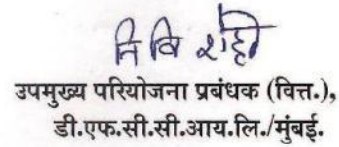 उपमुख्य परियोजना प्रबंधक (वित्त.),
डी.एफ.सी.सी.आय.लि./मुंबई.